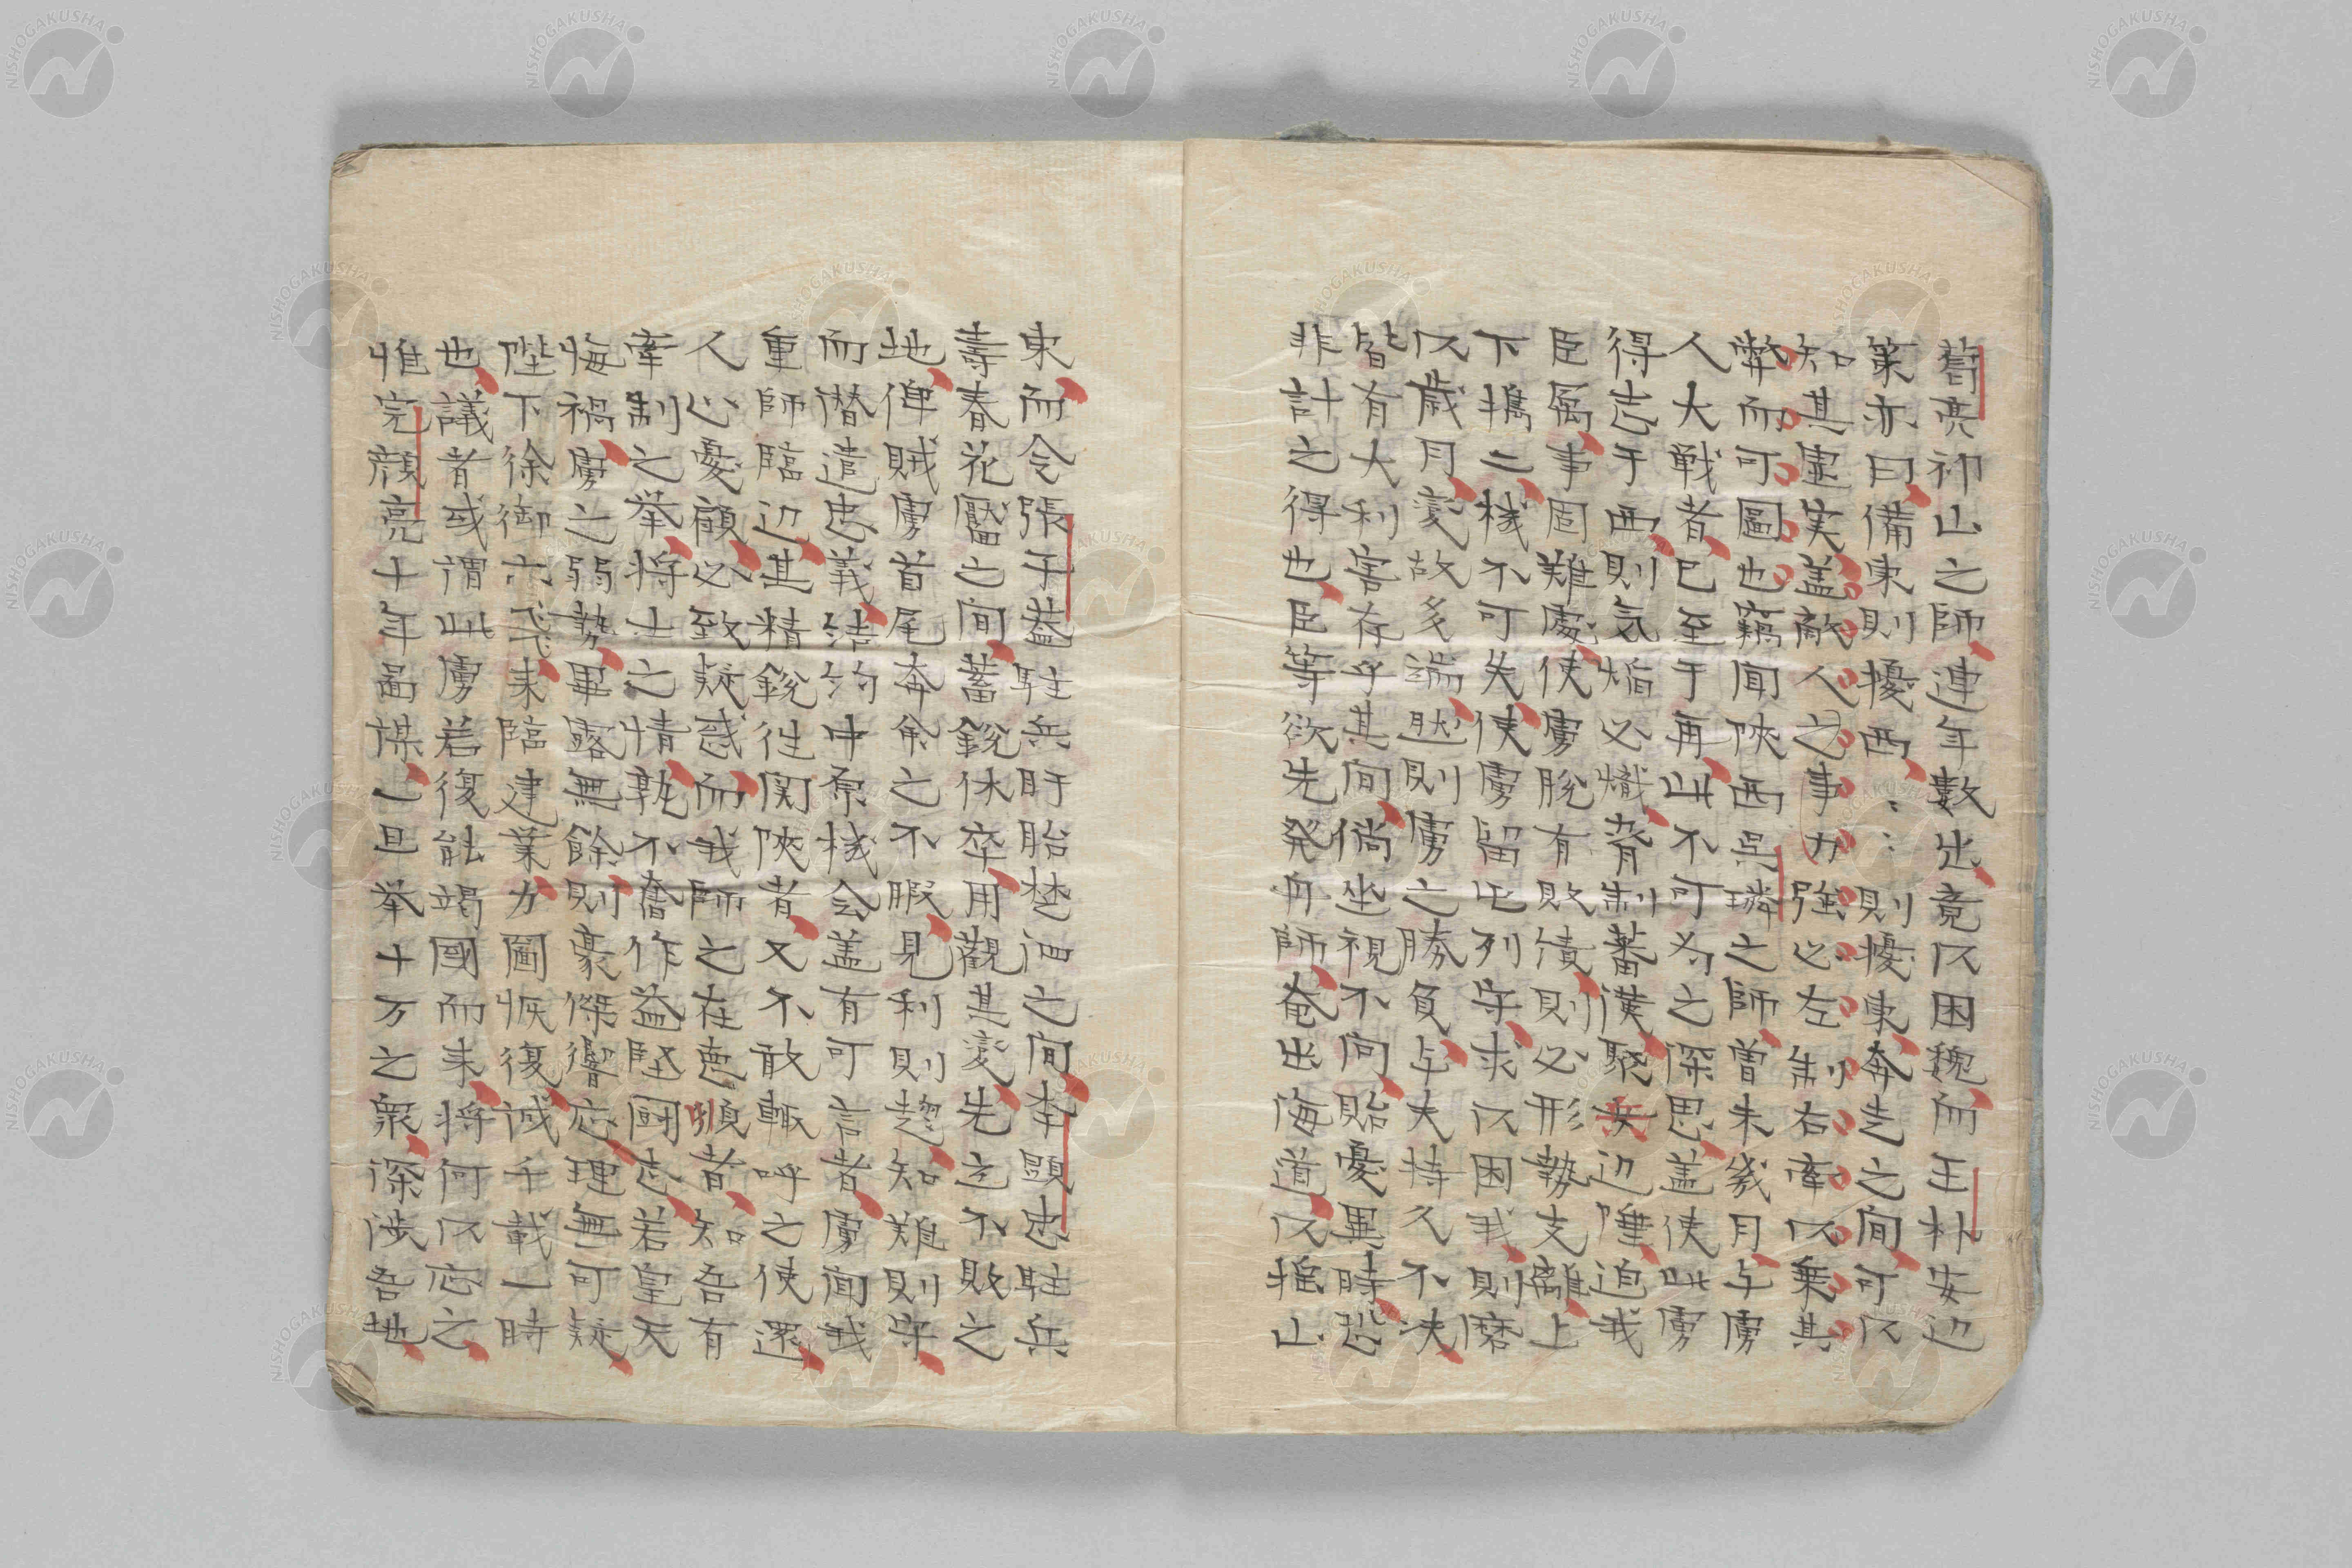 葛亮祁山之師連年數出竟以困魏而王朴安辺
策亦曰備東則擾西〻〻則擾東奔走之間可以
知其虚実盖敵人之事力強必左制右牽以乗其
弊而可圖也竊聞陝西呉璘之師曽未幾月与虜
人大戦者已至于再此不可為之深思盖使此虜
得志于西則気焔必熾脅制蕃漢聚兵辺陲迫我
臣属事固難處使虜脱有敗債則必形勢支離上
下携二機不可失使虜留屯列守求以困我則磨
以歳月変故多端然則虜之勝負与夫持久不决
皆有大利害存乎其間倘坐視不问貽憂異時恐
非計之得也臣等欲先発舟師奄出海道以揺山
東而令張子蓋駐兵盱眙楚泗之间李顕忠駐兵
壽春花靨之间蓄鋭休卒用觀其変先立不敗之
地俾賊虜首尾奔命之不暇見利則趍知難則守
而潜遣忠義結約中原機会盖有可言者虜聞我
重師臨辺其精鋭徃関陝者又不敢輙呼之使還
人心憂顧必致疑惑而我師之在徳順者知吾有
牽制之挙将士之情孰不奮作益堅圖志若皇天
悔禍虜之弱勢畢露無餘則豪傑響応理無可疑
陛下徐御六飛来臨建業力圖恢復誠千載一時
也議者或謂此虜若復能竭國而来将何以応之
惟完顔亮十年啚謀一旦挙十万之衆深渉吾地